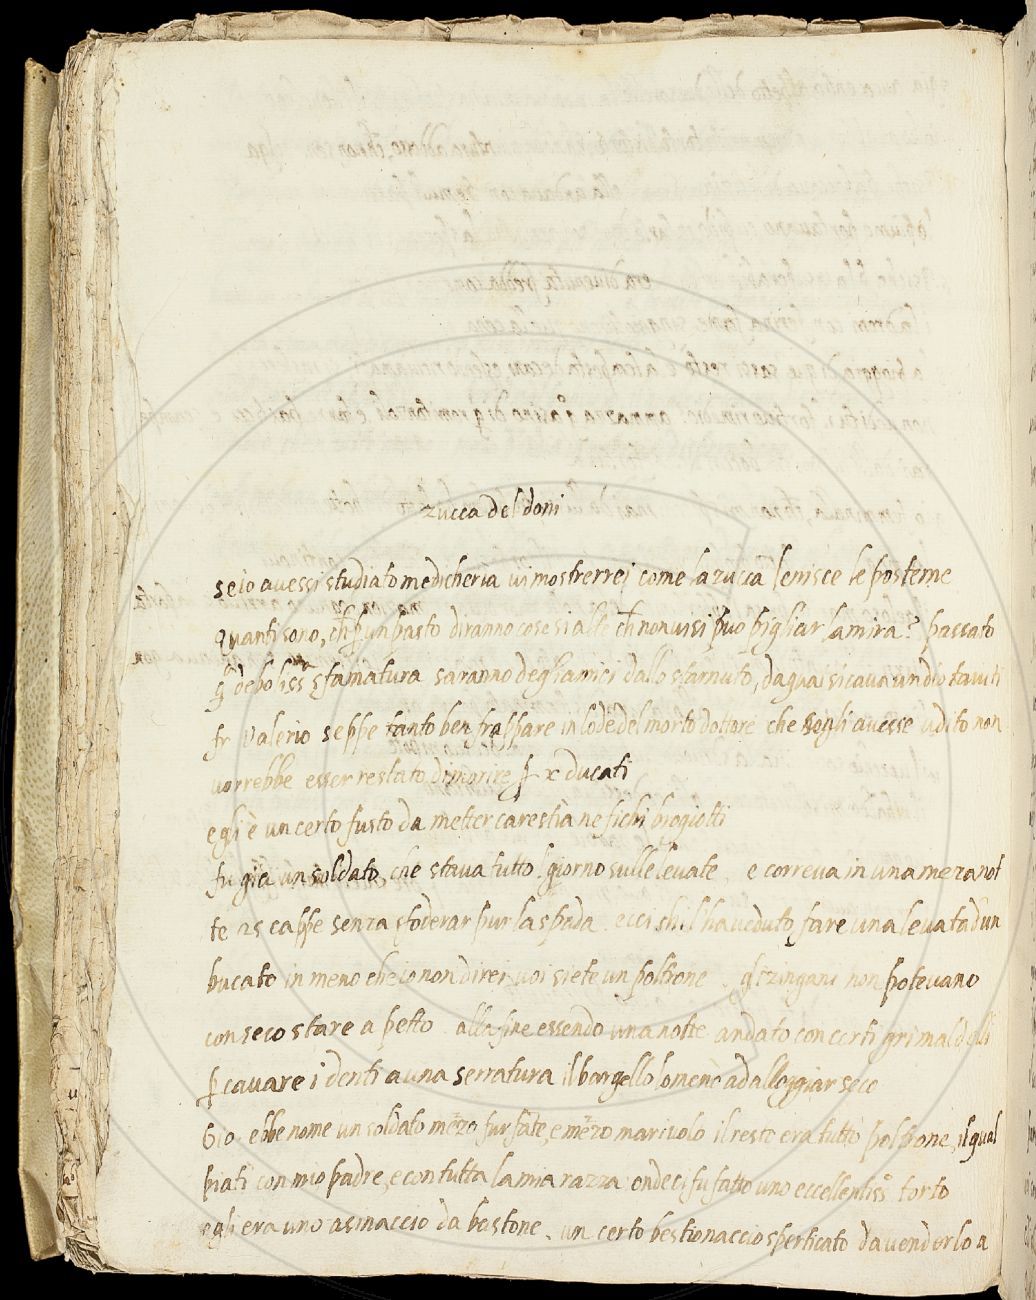 zucca del doni
se io avessi studiato medicheria vi mostrerrei come la zucca lenisce le posteme
quanti sono, che un pasto diranno cose si alte che non vi si può pigliar la mira? passato
deboliss sfamatura saranno degli amici dallo starnuto, da quai si cava un dio t'aiuti
fr Valerio seppe tanto ben frappare in lode del morto dottore che s'egli avesse udito non
vorrebbe esser restato di morire x ducati
egli è un certo fusto da metter carestia ne fichi brogiotti
fu già un soldato che stava tutto l giorno sulle levate. e correva in una meza not
te 25 cappe senza sfoderar pur la spada. ecci chi l'ha veduto fare una levata d'un
bucato in meno che io non direi voi siete un poltrone. gli zingani non potevano
con seco stare a petto. alla fine essendo una notte andato con certi grimaldelli
cavare i denti a una serratura il bargello lo menò ad alloggiar seco
Gio. ebbe nome un soldato mezo furfate, e mezo mariuolo il resto era tutto poltrone, il qual
piatì con mio padre, e con tutta la mia razza onde ci fu fatto uno eccellentiss torto
egli era uno asinaccio da bastone. un certo bestionaccio sperticato da venderlo a